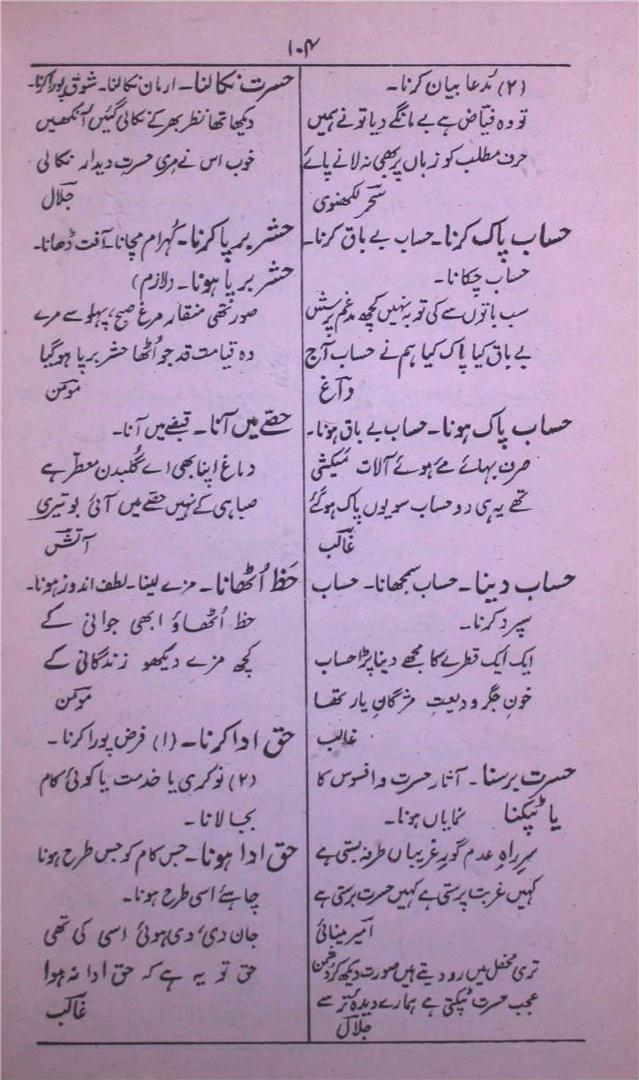 ۱۰۴
(۲) مُدعا بیان کرنا۔
تو وہ فیّاض ہے بے مانگے دیا تو نے ہمیں
حرف مطلب کو زباں پر بھی نہ لانے پائے
سحر لکھنوی
حساب پاک کرنا۔ حساب بے باق کرنا۔
حساب چکانا۔
سب باتوں سے کی توبہ نہیں کچھ غم پرسش
بے باق کیا پاک کیا ہم نے حساب آج
داغ
حساب پاک ہونا۔ حساب بے باق ہونا۔
صرف بہائے مے ہوئے آلات میکشی
تھے یہ ہی دو حساب سو یوں پاک ہو گئے
غالب
حساب دینا۔ حساب سمجھانا۔ حساب
سپرد کرنا۔
ایک ایک قطرے کا مجھے دینا پڑا حساب
خون جگر ودیعتِ مژگانِ یار تھا
غالب
حسرت برسنا۔ آثار حسرت و افسوس کا
یا ٹپکنا نمایاں ہونا۔
سرِ راہِ عدم گورِ غریباں طرفہ بستی ہے
کہیں غربت برستی ہے کہیں حسرت برستی ہے
امیر مینائی
تری محفل میں رو دیتے ہیں صورت دیکھ کر دشمن
عجب حسرت ٹپکتی ہے ہمارے دیدۂ تر سے
جلال
حسرت نکالنا۔ ارمان نکالنا۔ شوق پورا کرنا۔
دیکھا تھا نظر بھر کے نکالی گئیں آنکھیں
خوب اس نے مری حسرت دیدار نکالی
جلال
حشر برپا کرنا۔ کُہرام مچانا۔ آفت ڈھانا۔
حشر برپا ہونا۔ (لازم)
صور تھی منقار مرغ صبح، پہلو سے مرے
وہ قیامت قد جو اُٹھا حشر برپا ہو گیا
مومن
حصّے میں آنا۔ قبضے میں آنا۔
دماغ اپنا بھی اے گُلبدن معطّر ہے
صبا ہی کے نہیں حصّے میں آئی بو تیری
آتش
حَظ اُٹھانا۔ مزے لینا۔ لطف اندوز ہونا۔
حظ اُٹھاؤ ابھی جوانی کے
کچھ مزے دیکھو زندگانی کے
مومن
حق ادا کرنا۔ (۱) فرض پورا کرنا۔
(۲) نوکری یا خدمت یا کوئی کام
بجا لانا۔
حق ادا ہونا۔ جس کام کو جس طرح ہونا
چاہئے اسی طرح ہونا۔
جان دی، دی ہوئی اسی کی تھی
حق تو یہ ہے کہ حق ادا نہ ہوا
غالب